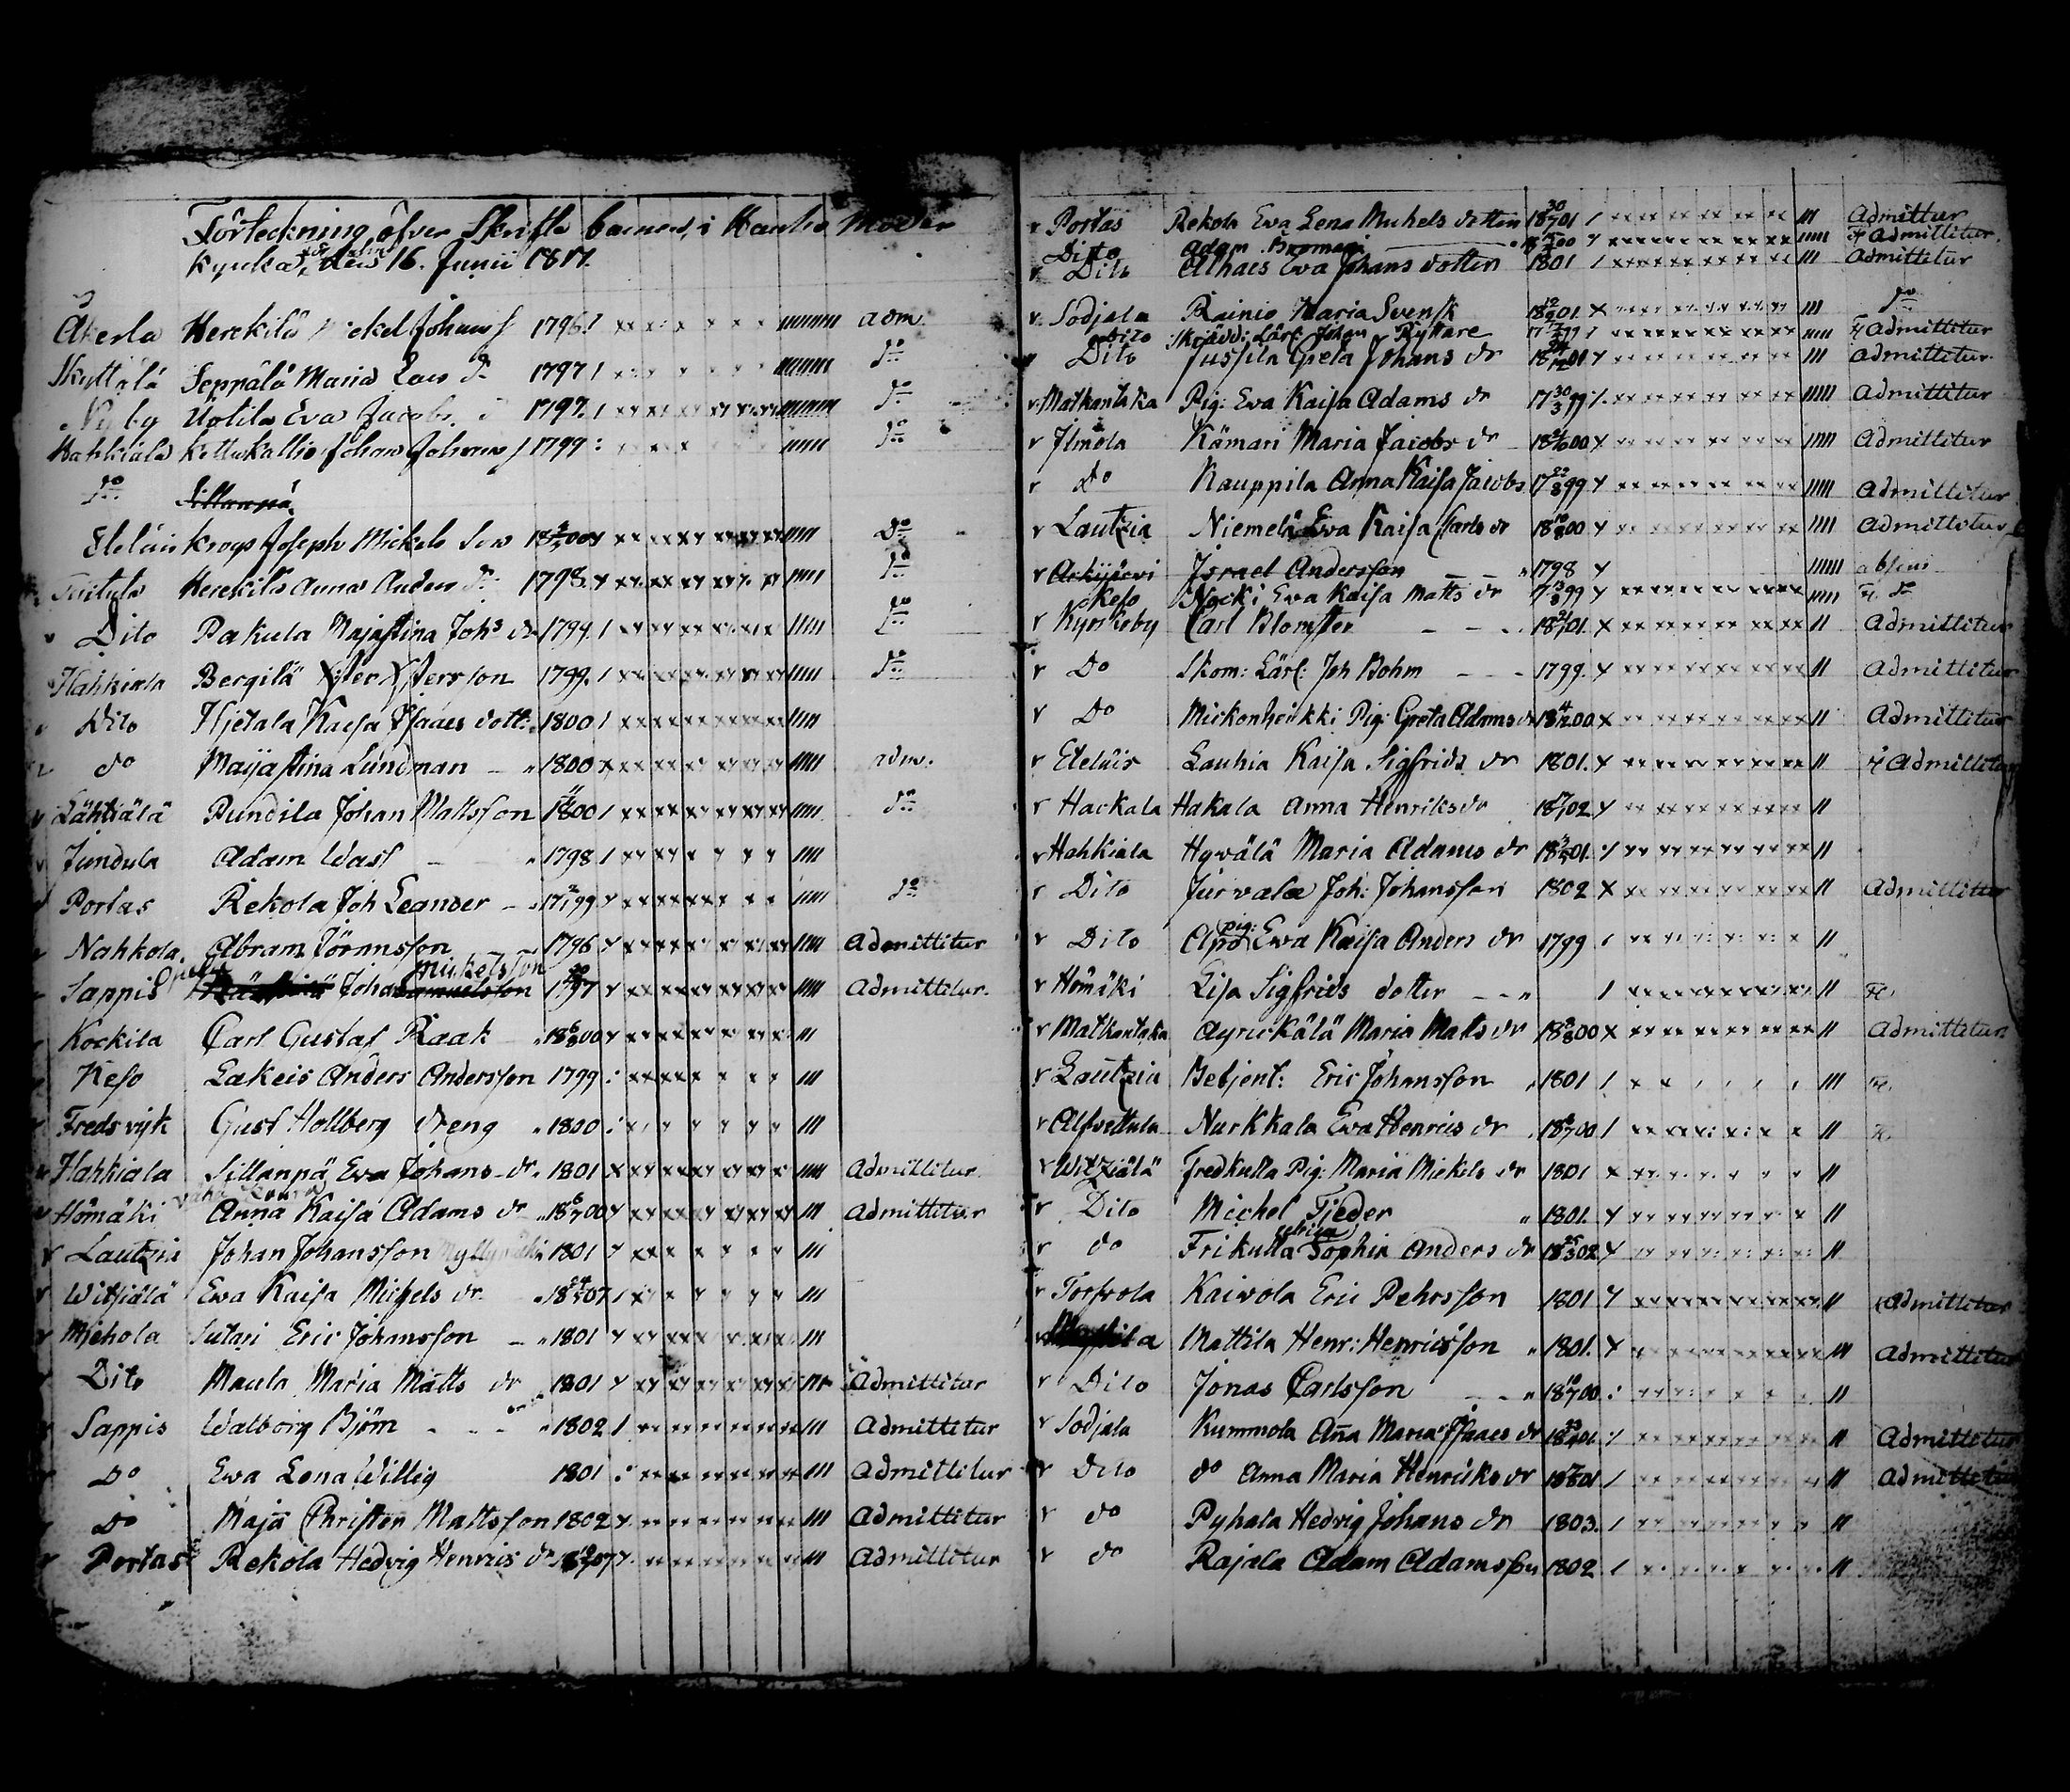 Förteckning öfver Skrifte barnen, i Hauho Moder
Kyrka den 16. Junii 1817.
Åkerla Herckilä Mickel Johans 1796. adm.
Skyttälä Seppälä Maria 1797 do
Nyby Uotila Eva Jacobs 1797. do
Hahkiala Kettukallio Johan Johans 1799 do
do Sillanpä
Eteläis Krogs Joseph Mickels Son 1800 Do
Tuitula Herckilä Anna Anders 1798. do
Dito Pakula Majastina Johs dr 1799. do
Hahkiala Bergilä Xster Xstersson 1799. do
Dito Hjetala Kaisa Isaacs dott: 1800
do Maijastina Lundman 1800 adm.
Lähtiälä Pundila Johan Mattsson 1800 do
Jundula Adam Wass 1798
Portas Rekola Joh Leander 1799 do
Nahkola Abram Jöransson 1796 Admittitur
Mickelsson
Sappis Johan Samuelsson 1797 Admittitur.
Kockila Carl Gustaf Raak 1800
Keso Lakeis Anders Andersson 1799
Fredsvik Gust Hollberg dreng 1800
Hahkiala Sillanpä Eva Johans dr. 1801 Admittitur
Hömäki Anna Kaisa Adams dr 1800 Admittitur
Lautzia Johan Johansson 1801
Witsiälä Ewa Kaisa Michels dr.
Miehola Sutari Eric Johansson 1801
Dito Maula Maria Matts dr 1801 Admittitur
Sappis Walborg Björn 1802 Admittitur
Do Ewa Lena Willig 1801 Admittitur
Do Maja Christin Mattsson 1802 Admittitur
Portas Rekola Hedvig Henrics dr Admittitur
Portas Rekola Eva Lena Michels dotter 30/7 1801 Admittitur
Dito Adam Bromani 1800 Admittitur.
Dito Alhais Eva Johans dotter 1801 Admittitur
Sodjala Rainio Maria Svensk 1801 do
Dito Skräddi: Lärl: Johan Ryttare 1799 Admittitur
Dito Jussila Greta Johans dr 1801 Admittitur.
Matkantaka Pig: Eva Kaisa Adams dr 30/3 1799 Admittitur
Ilmola Kämari Maria Jacobs dr 1800 Admittitur
Do Kauppila Anna Kaisa Jacobs 22/8 1799 Admittitur
Lautzia Niemelä Eva Kaisa Carls dr 1800 Admittitur
Ackijärvi Israel Andersson 1798 absens
Keso Nocki Eva Kaisa Matts dr 13/8 1799 do
Kyrkeby Carl Blomster 1801. Admittitur
Do Skom: Lärl: Joh Bohm 1799. Admittitur
Do Mickonheikki Pig: Greta Adams dr 1800 Admittitur
Eteläis Lauhia Kaisa Sigfrids dr 1801. Admittitur
Hackala Hakala Anna Henriks dr 1802
Hahkiala Hyvälä Maria Adams dr 1801.
Dito Jurvala Joh: Johansson 1802 Admittitur
Dito pig: Ewa Kaisa Anders dr 1799
Hömäki Lisa Sigfrids dotter
Matkantaka Ayrickälä Maria Matts dr 1800 Admittitur
Lautzia Betjent: Eric Johansson 1801
Alfvettula Nurkkala Eva Henrics dr 1800
Witziälä Fredkulla Pig: Maria Mickels dr 1801
Dito Michel Tieder 1801.
do Frikulla Ulrica Sophia Anders dr 1802
Torfvola Kaivola Eric Pehrsson 1801 Admittitur
Mattila Henr: Henricsson 1801. Admittitur
Dito Jonas Carlsson 1800.
Sodjala Kummola Anna Maria Isaacs dr 1801. Admittitur
Dito do Anna Maria Henricks dr 1801 Admittitur
do Pyhala Hedvig Johans dr 1803.
do Rajala Adam Adamsson 1802